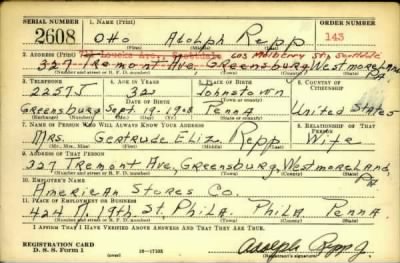 SERIAL NUMBER 1. NAME (Print) ORDER NUMBER
2608 Otto Adolph Repp 143
(First) (Middle) (Last)
2. ADDRESS (Print) 605 Mulberry St. Scottdale
327 Tremont Ave, Greensburg, Westmoreland Pa.
(Number and street or R. F. D. number) (Town) (County) (State)
3. TELEPHONE 4. AGE IN YEARS 5. PLACE OF BIRTH 6. COUNTRY OF CITIZENSHIP
2257J 32 Johnstown
DATE OF BIRTH (Town or county)
Greensburg Sept. 19, 1908 Penna United States
(Exchange) (Mo.) (Day) (Yr.) (State or country)
7. NAME OF PERSON WHO WILL ALWAYS KNOW YOUR ADDRESS 8. RELATIONSHIP OF THAT PERSON
Mrs. Gertrude Eliz. Repp Wife
(Mr., Mrs., Miss) (First) (Middle) (Last)
9. ADDRESS OF THAT PERSON
327 Tremont Ave, Greensburg, Westmoreland, Pa
(Number and street or R. F. D. number) (Town) (County) (State)
10. EMPLOYER'S NAME
American Stores Co.
11. PLACE OF EMPLOYMENT OR BUSINESS
424 N. 19th. St. Phila. Phila Penna
(Number and street or R. F. D. number) (Town) (County) (State)
I AFFIRM THAT I HAVE VERIFIED ABOVE ANSWERS AND THAT THEY ARE TRUE.
REGISTRATION CARD
D. S. S. Form 1 16—17105 Adolph Repp
(Registrant's signature)